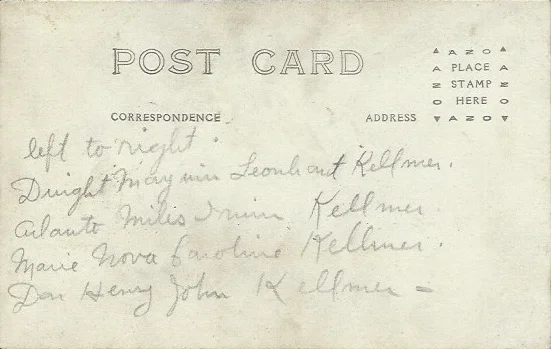 POST CARD
AZO
PLACE
STAMP
HERE
AZO
CORRESPONDENCE
ADDRESS
left to right.
Dwight Leonhart Kellmer.
Miles Kellmer
Marie Nova Caroline Kellmer.
Don Henry John Kellmer